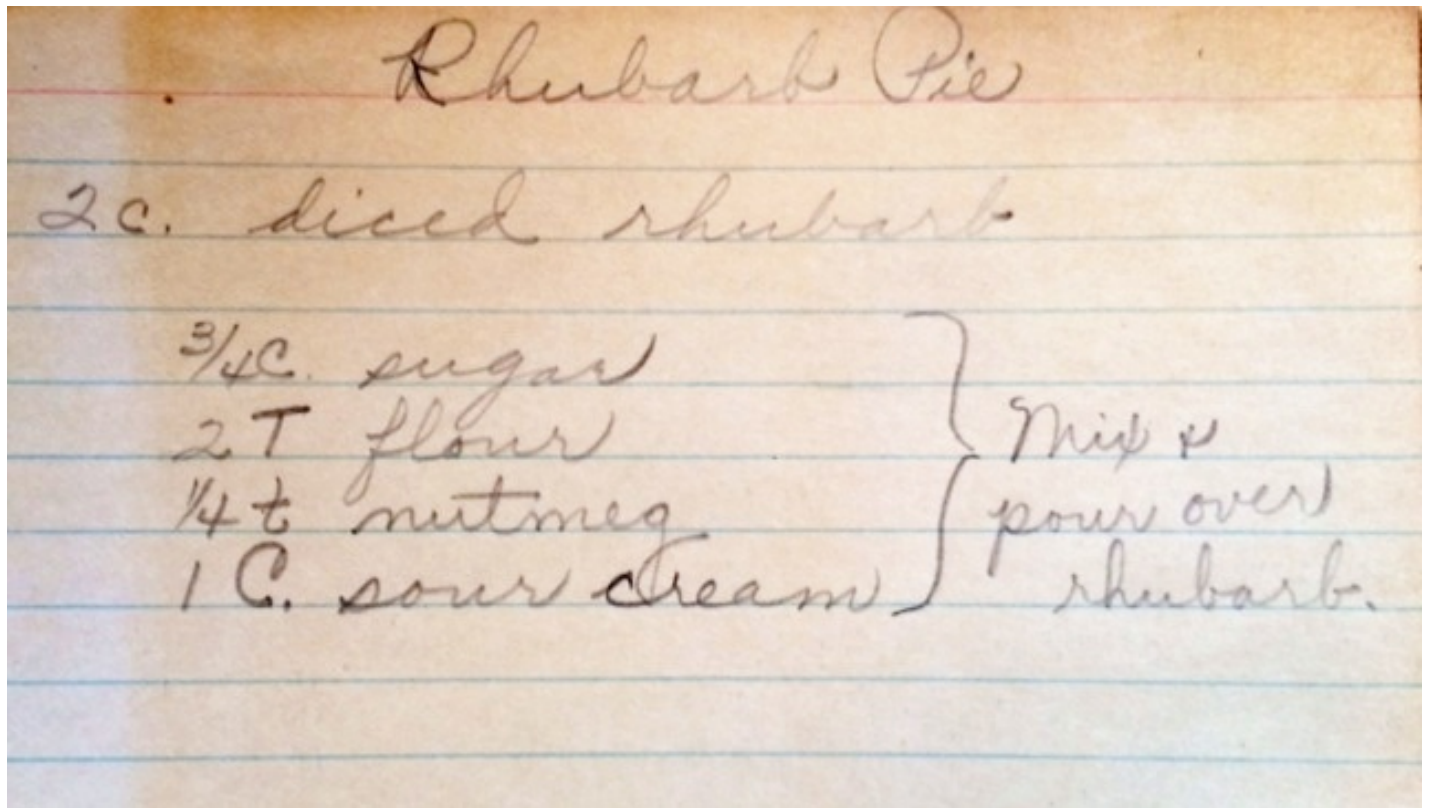 Rhubarb Pie
2 c. diced rhubarb
3/4 C. sugar
2 T flour
1/4 t nutmeg
1 C. sour cream
Mix &
pour over
rhubarb.